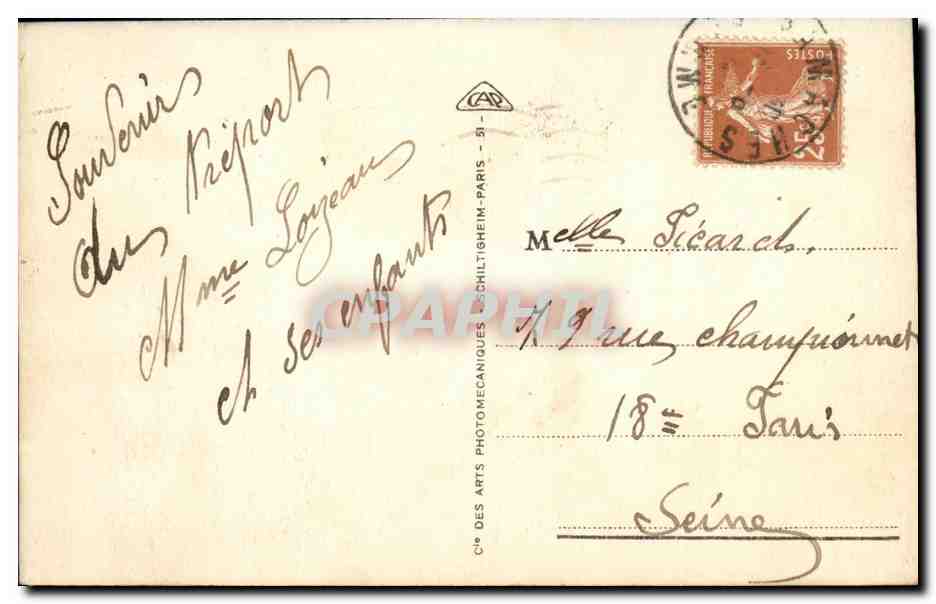 Souvenir
du Tréport
Mme Loizeau
et ses enfants
CAP
Cie DES ARTS PHOTOMECANIQUES - SCHILTIGHEIM-PARIS - 51 -
REPUBLIQUE FRANÇAISE
POSTES
25
CPAPHIL
Melle Picard.
79 rue championnet
18e Paris
Seine